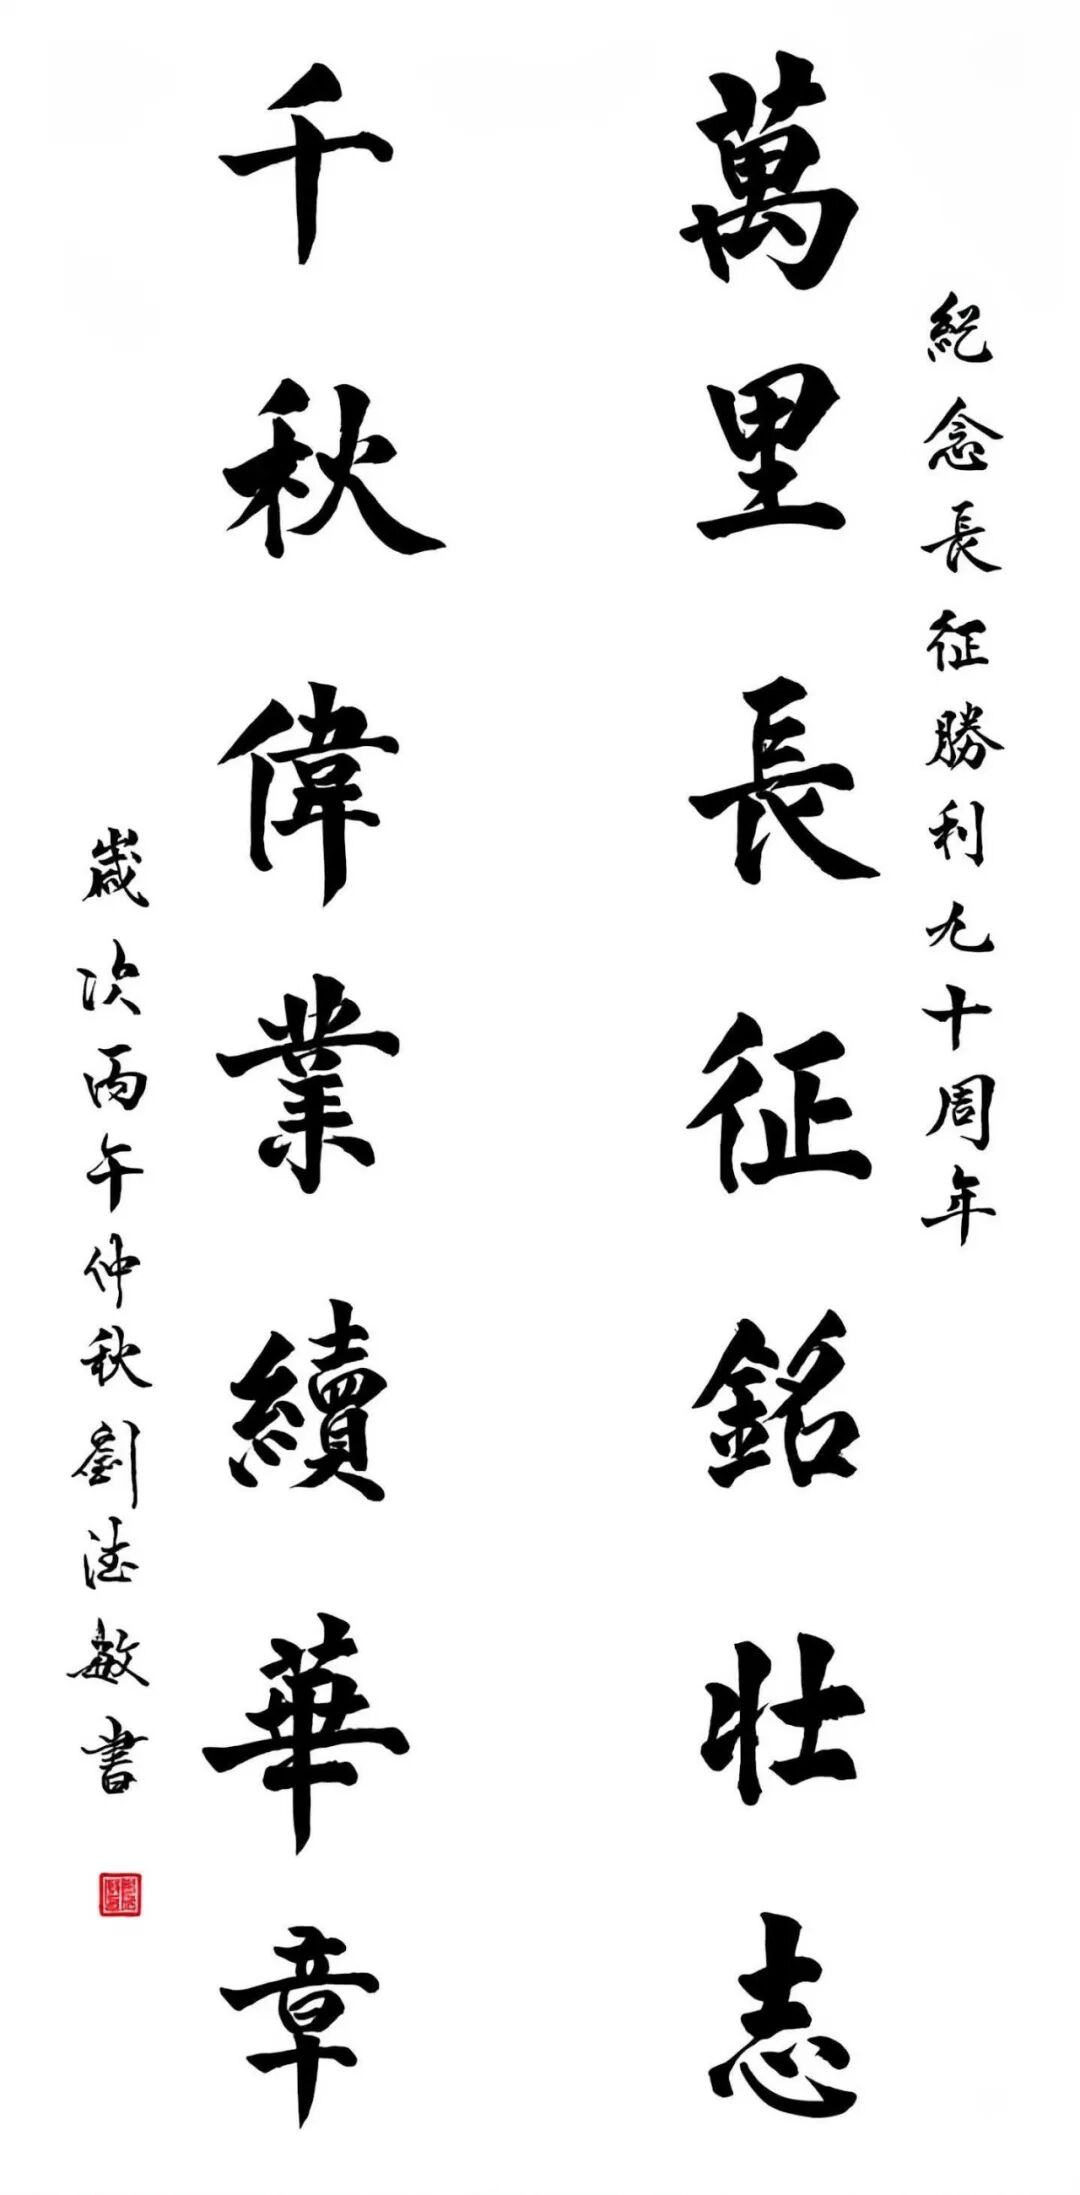 紀念長征勝利九十周年
萬里長征銘壯志
千秋偉業續華章
歲次丙午仲秋劉德敏書